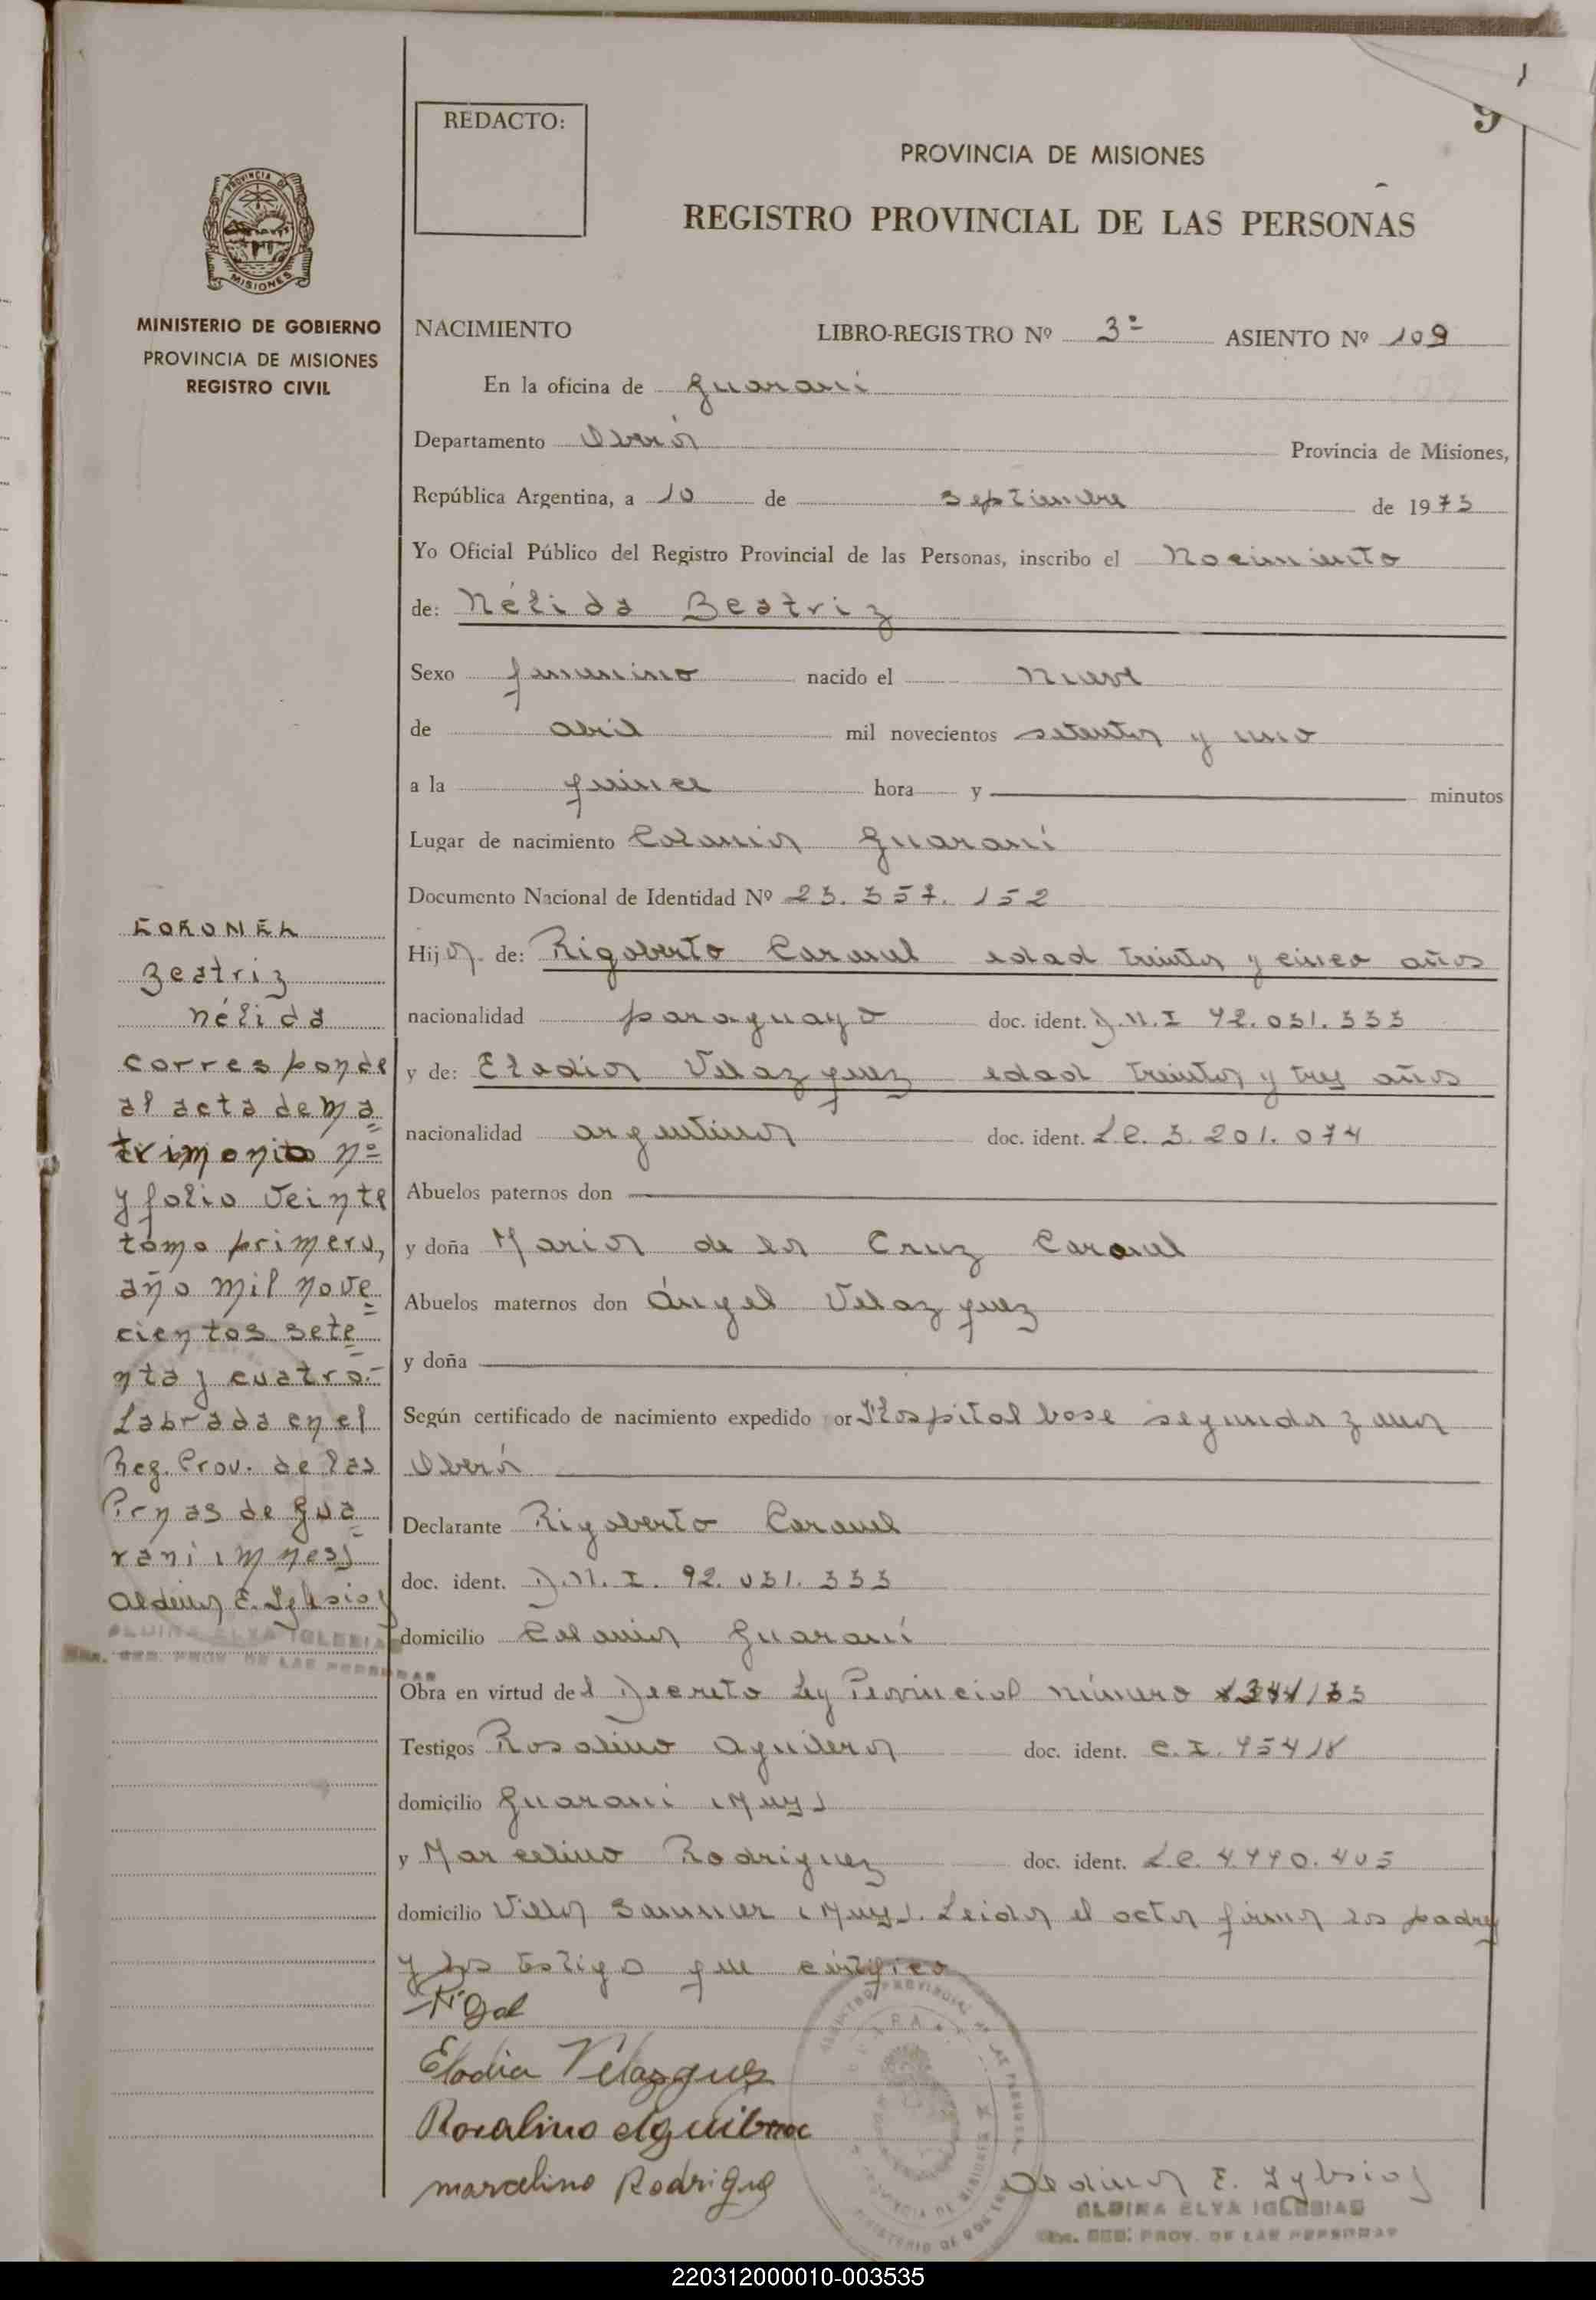 9
REDACTO:
PROVINCIA DE MISIONES
REGISTRO PROVINCIAL DE LAS PERSONAS
PROVINCIA DE
MISIONES
MINISTERIO DE GOBIERNO
PROVINCIA DE MISIONES
REGISTRO CIVIL
NACIMIENTO LIBRO-REGISTRO Nº 3º ASIENTO Nº 109
En la oficina de Guaraní
Departamento Oberá Provincia de Misiones,
República Argentina, a 10 de septiembre de 1973
Yo Oficial Público del Registro Provincial de las Personas, inscribo el Nacimiento
de: Nélida Beatriz
Sexo femenino nacido el nueve
de abril mil novecientos setenta y uno
a la quince hora y minutos
Lugar de nacimiento Colonia Guaraní
Documento Nacional de Identidad Nº 23.357.152
Hija de: Rigoberto Coronel edad treinta y cinco años
nacionalidad paraguayo doc. ident. D.N.I 92.031.333
y de: Eladia Velazquez edad treinta y tres años
nacionalidad argentina doc. ident. L.C. 3.201.074
Abuelos paternos don
y doña María de la Cruz Coronel
Abuelos maternos don Ángel Velazquez
y doña
Según certificado de nacimiento expedido or Hospital base segunda zona
Oberá
Declarante Rigoberto Coronel
doc. ident. D.N.I. 92.031.333
domicilio Colonia Guaraní
Obra en virtud del Decreto Ley Provincial número
Testigos Rosalino Aguilera doc. ident. C.I. 45418
domicilio Guaraní (Mnes)
y Marcelino Rodriguez doc. ident. L.E. 4.440.405
domicilio Villa Bonita (Mnes). Leida el acta firma los padres
y los testigo que certifico
CORONEL
Beatriz
Nélida
corresponde
al acta de ma
trimonio nº
y folio veinte
tomo primero,
año mil nove
cientos sete
nta y cuatro.-
Labrada en el
Reg. Prov. de las
Prnas de Gua
raní (Mnes)
Aldina E. Iglesias
ALDINA ELVA IGLESIAS
REG. PROV. DE LAS PERSONAS
Eladia Velazquez
Rosalino Aguilera
marcelino Rodrigue
Aldina E. Iglesias
ALDINA ELVA IGLESIAS
REG. PROV. DE LAS PERSONAS
220312000010-003535